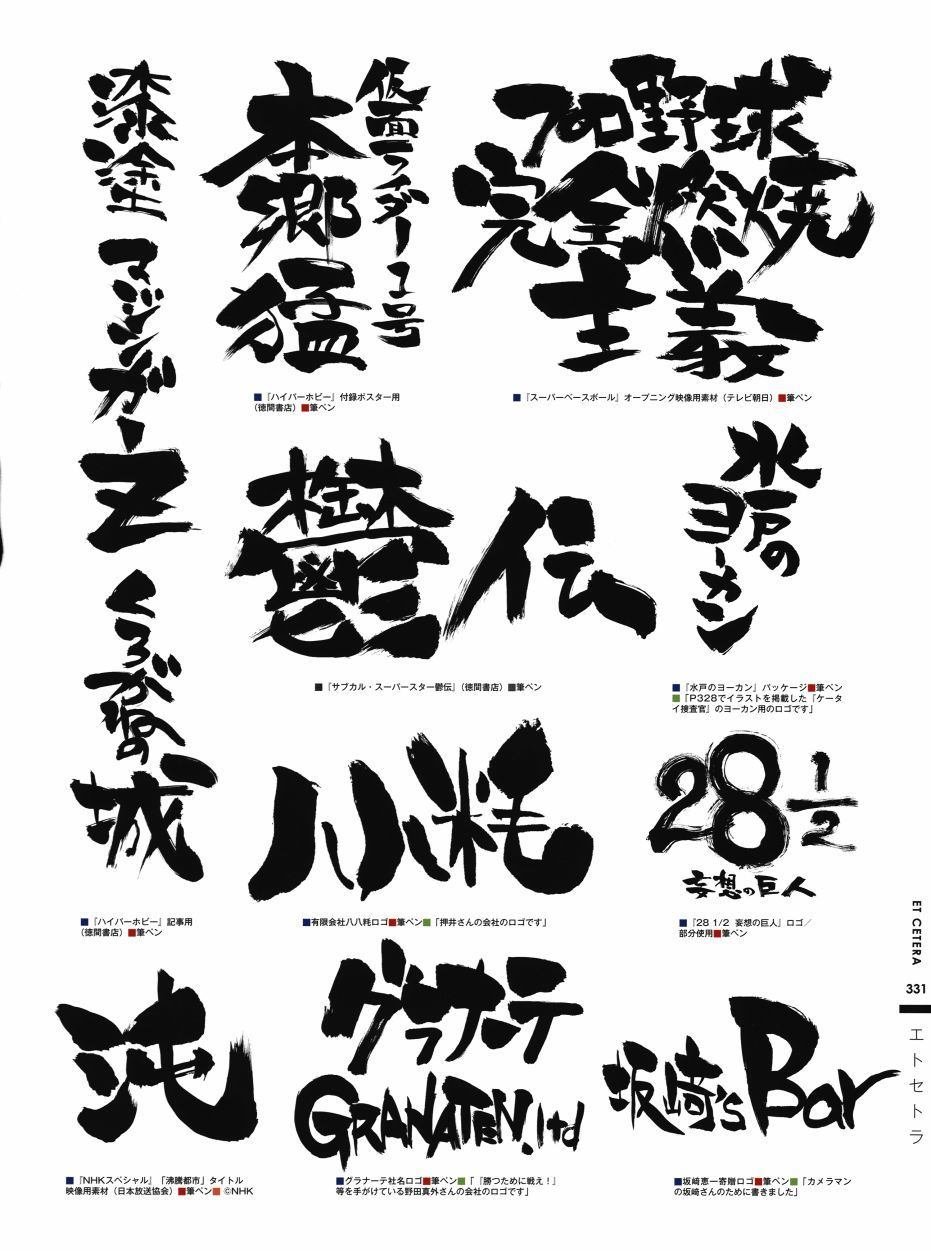 漆塗
マジンガーZ
くろがねの
城
■『ハイパーホビー』記事用
(徳間書店)■筆ペン
仮面ライダー1号
本郷
猛
■『ハイパーホビー』付録ポスター用
(徳間書店)■筆ペン
プロ野球
完全燃焼
主義
■『スーパーベースボール』オープニング映像用素材(テレビ朝日)■筆ペン
鬱伝
■『サブカル・スーパースター鬱伝』(徳間書店)■筆ペン
水戸の
ヨーカン
■『水戸のヨーカン』パッケージ■筆ペン
■「P328でイラストを掲載した『ケータ
イ捜査官』のヨーカン用のロゴです」
八八粍
■有限会社八八粍ロゴ■筆ペン■「押井さんの会社のロゴです」
28 1/2
妄想の巨人
■『28 1/2 妄想の巨人』ロゴ/
部分使用■筆ペン
沌
■『NHKスペシャル』「沸騰都市」タイトル
映像用素材(日本放送協会)■筆ペン■©NHK
グラナーテ
GRANATEN.ltd
■グラナーテ社名ロゴ■筆ペン■「『勝つために戦え!』
等を手がけている野田真外さんの会社のロゴです」
坂崎's Bar
■坂崎恵一寄贈ロゴ■筆ペン■「カメラマン
の坂崎さんのために書きました」
ET CETERA
331
エトセトラ